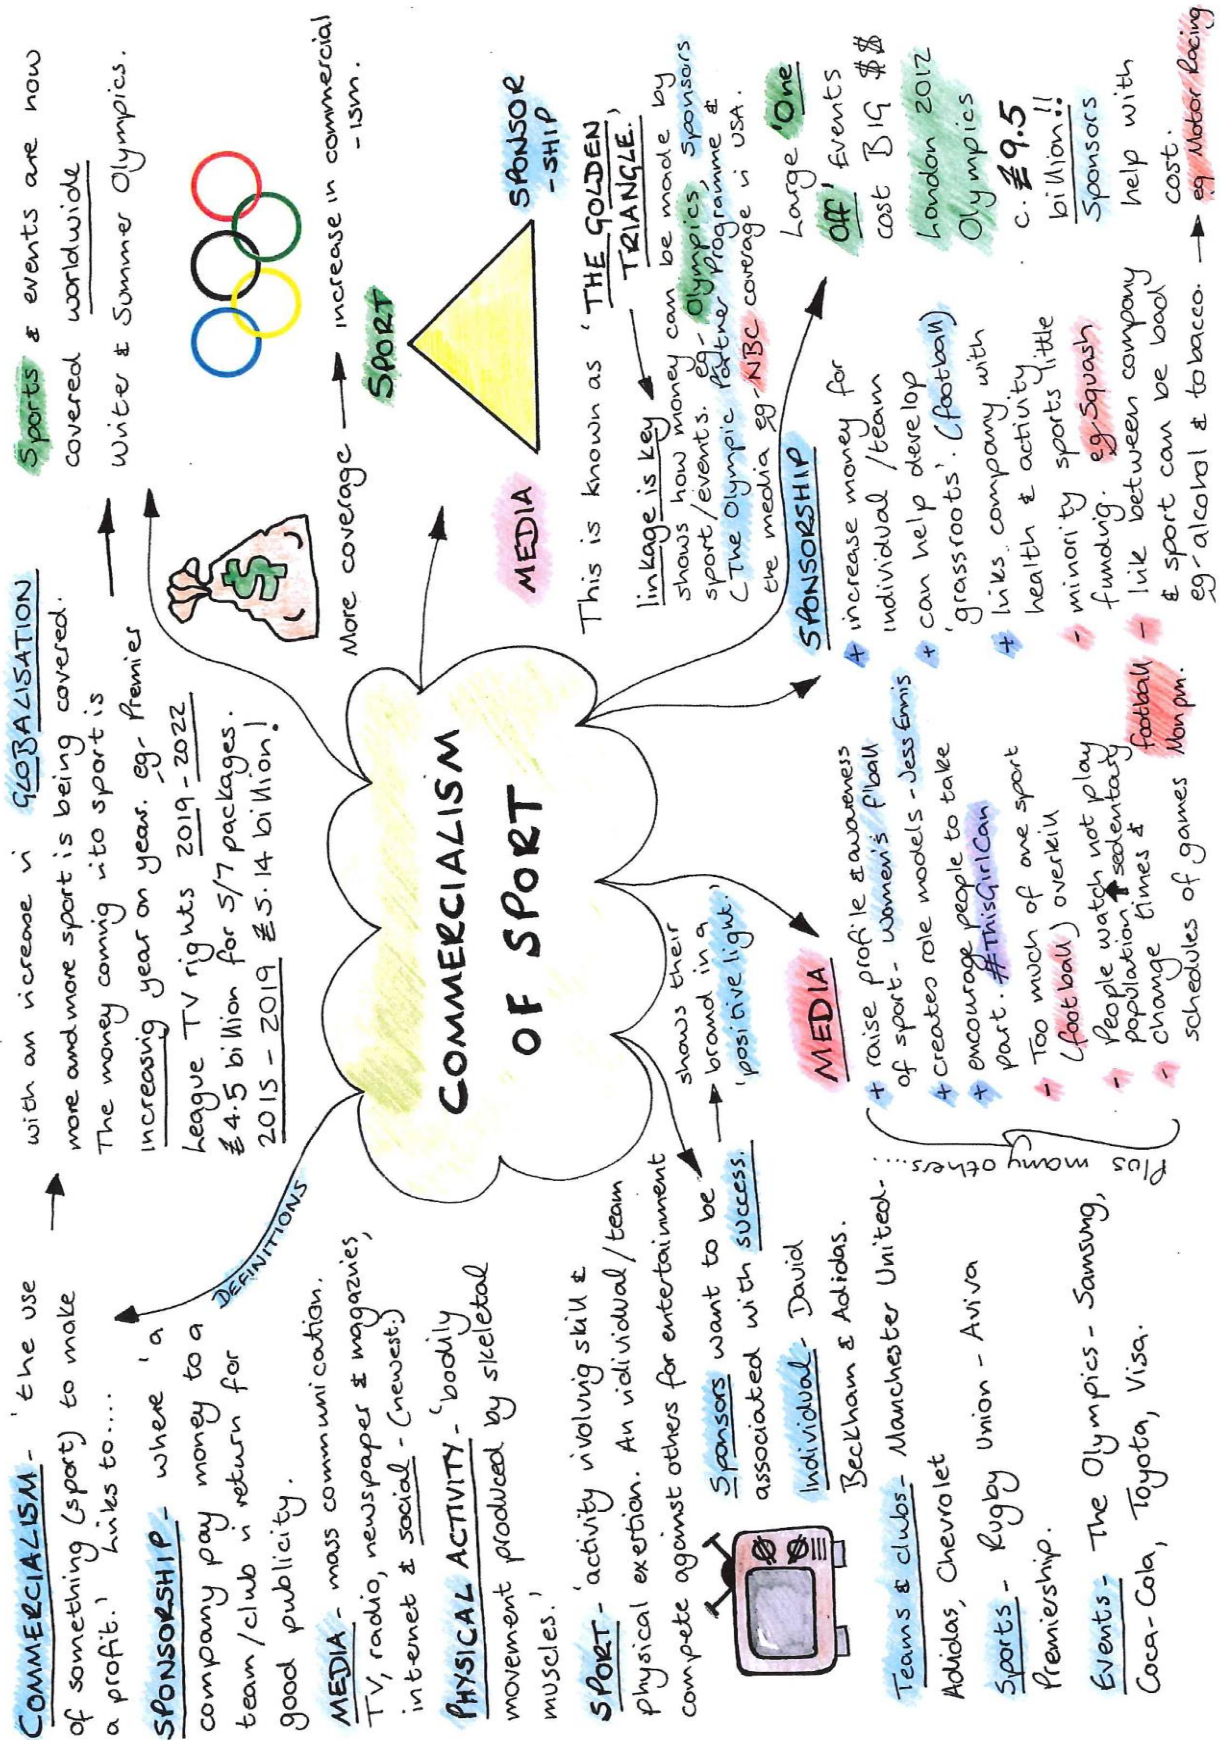 COMMERCIALISM - 'the use
of something (sport) to make
a profit.' Links to....
SPONSORSHIP - where 'a
company pay money to a
team/club in return for
good publicity.
MEDIA - mass communication.
TV, radio, newspaper & magazines,
internet & social - (newest.)
PHYSICAL ACTIVITY - 'bodily
movement produced by skeletal
muscles.'
SPORT - 'activity involving skill &
physical exertion. An individual/team
compete against others for entertainment
DEFINITIONS
with an increase in GLOBALISATION
more and more sport is being covered.
The money coming into sport is
increasing year on year. eg- Premier
League TV rights 2019-2022
£4.5 billion for 5/7 packages.
2015-2019 £5.14 billion!
Sports & events are now
covered worldwide
Winter & Summer Olympics.
$
More coverage → increase in commercial
-ism.
COMMERCIALISM
OF SPORT
SPORT
MEDIA
SPONSOR
-SHIP
This is known as 'THE GOLDEN
TRIANGLE.'
linkage is key
shows how money can be made by
sport/events. eg- Olympics, sponsors
(The Olympic Partner Programme &
the media eg- NBC coverage in USA.
Large 'One
Off' Events
cost BIG $$
London 2012
Olympics
c. £9.5
billion!!
Sponsors
help with
cost.
SPONSORSHIP
+ increase money for
individual/team
+ can help develop
'grassroots'. (football)
+ links company with
health & activity
- minority sports little
funding. eg Squash
- link between company
& sport can be bad
eg- alcohol & tobacco. → eg Motor Racing
MEDIA
+ raise profile & awareness
of sport - women's f'ball
+ creates role models - Jess Ennis
+ encourage people to take
part. #ThisGirlCan
- Too much of one sport
(football) overkill
- People watch not play
population ↑ sedentary
- change times &
schedules of games football
Mon pm.
Plus many others...
Sponsors want to be
associated with success.
→ shows their
brand in a
'positive light.'
Individual - David
Beckham & Adidas.
Teams & clubs - Manchester United -
Adidas, Chevrolet
Sports - Rugby Union - Aviva
Premiership.
Events - The Olympics - Samsung,
Coca-Cola, Toyota, Visa.